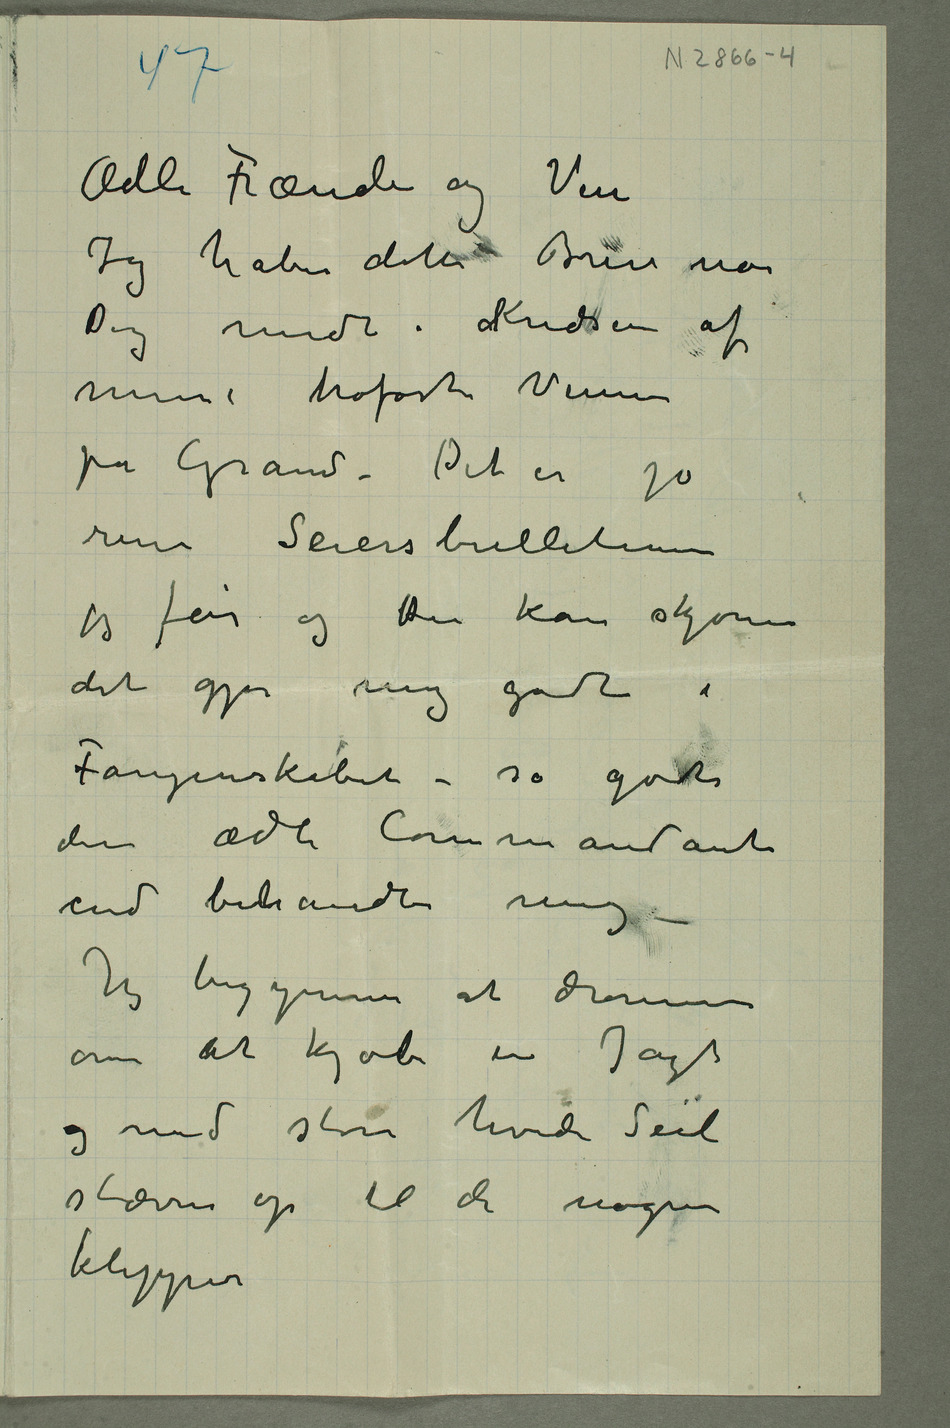 47
N 2866-4
Ædle Frænde og Ven
Jeg håber dette Brev når
Dig midt i Kredsen af
mine trofaste Venner
på Grand – Det er jo
rene Seiersbulletiner
jeg får og Du kan skjønne
det gjør mig godt i
Fangenskabet – så godt
den ædle Commandante
end behandler mig –
Jeg begynner at drømme
om at kjøbe en Jagt
og med store hvide Seil
stævne op til de nøgne
klipper